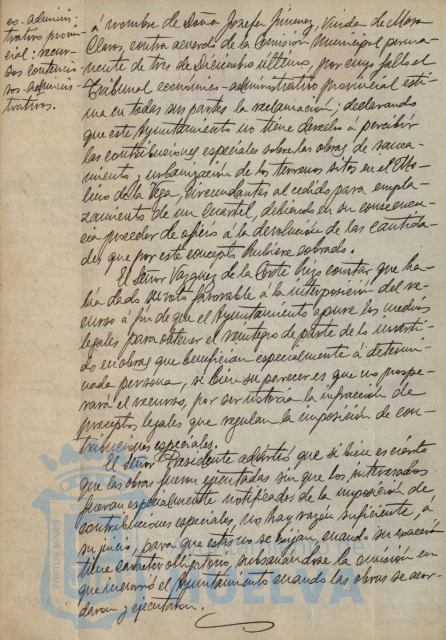 es-adminis
trativo provin
cial: recur
sos contencio
sos-adminis
trativos.
á nombre de Doña Josefa Jimenez, Viuda de Mora
Claros, contra acuerdo de la Comisión Municipal perma-
nente de tres de Diciembre último, por cuyo fallo el
Tribunal económico-administrativo provincial esti-
ma en todas sus partes la reclamación, declarando
que este Ayuntamiento no tiene derecho á percibir
las contribuciones especiales sobre las obras de sanea-
miento y urbanización de los terrenos sitos en el Mo-
lino de la Vega, circundantes al cedido para empla-
zamiento de un Cuartel, debiendo en su consecuen-
cia proceder de oficio á la devolución de las cantida-
des que por este concepto hubiere cobrado.
El Señor Vazquez de la Corte hizo constar que ha-
bía dado su voto favorable á la interposición del re-
curso á fin de que el Ayuntamiento apure los medios
legales para obtener el reintegro de parte de lo inverti-
do en obras que benefician especialmente á determi-
nada persona, si bien su parecer es que no prospe-
rará el recurso, por ser notoria la infracción de
preceptos legales que regulan la imposición de con-
tribuciones especiales.
El Señor Presidente advirtió que si bien es cierto
que las obras fueron ejecutadas sin que los interesados
fueran especialmente notificados de la imposición de
contribuciones especiales, no hay razón suficiente, á
su juicio, para que estas no se exijan, cuando su exacción
tiene carácter obligatorio, subsanándose la omisión en
que incurrió el Ayuntamiento cuando las obras se acor-
daron y ejecutaron.
PORTUS MARIS
HUELVA